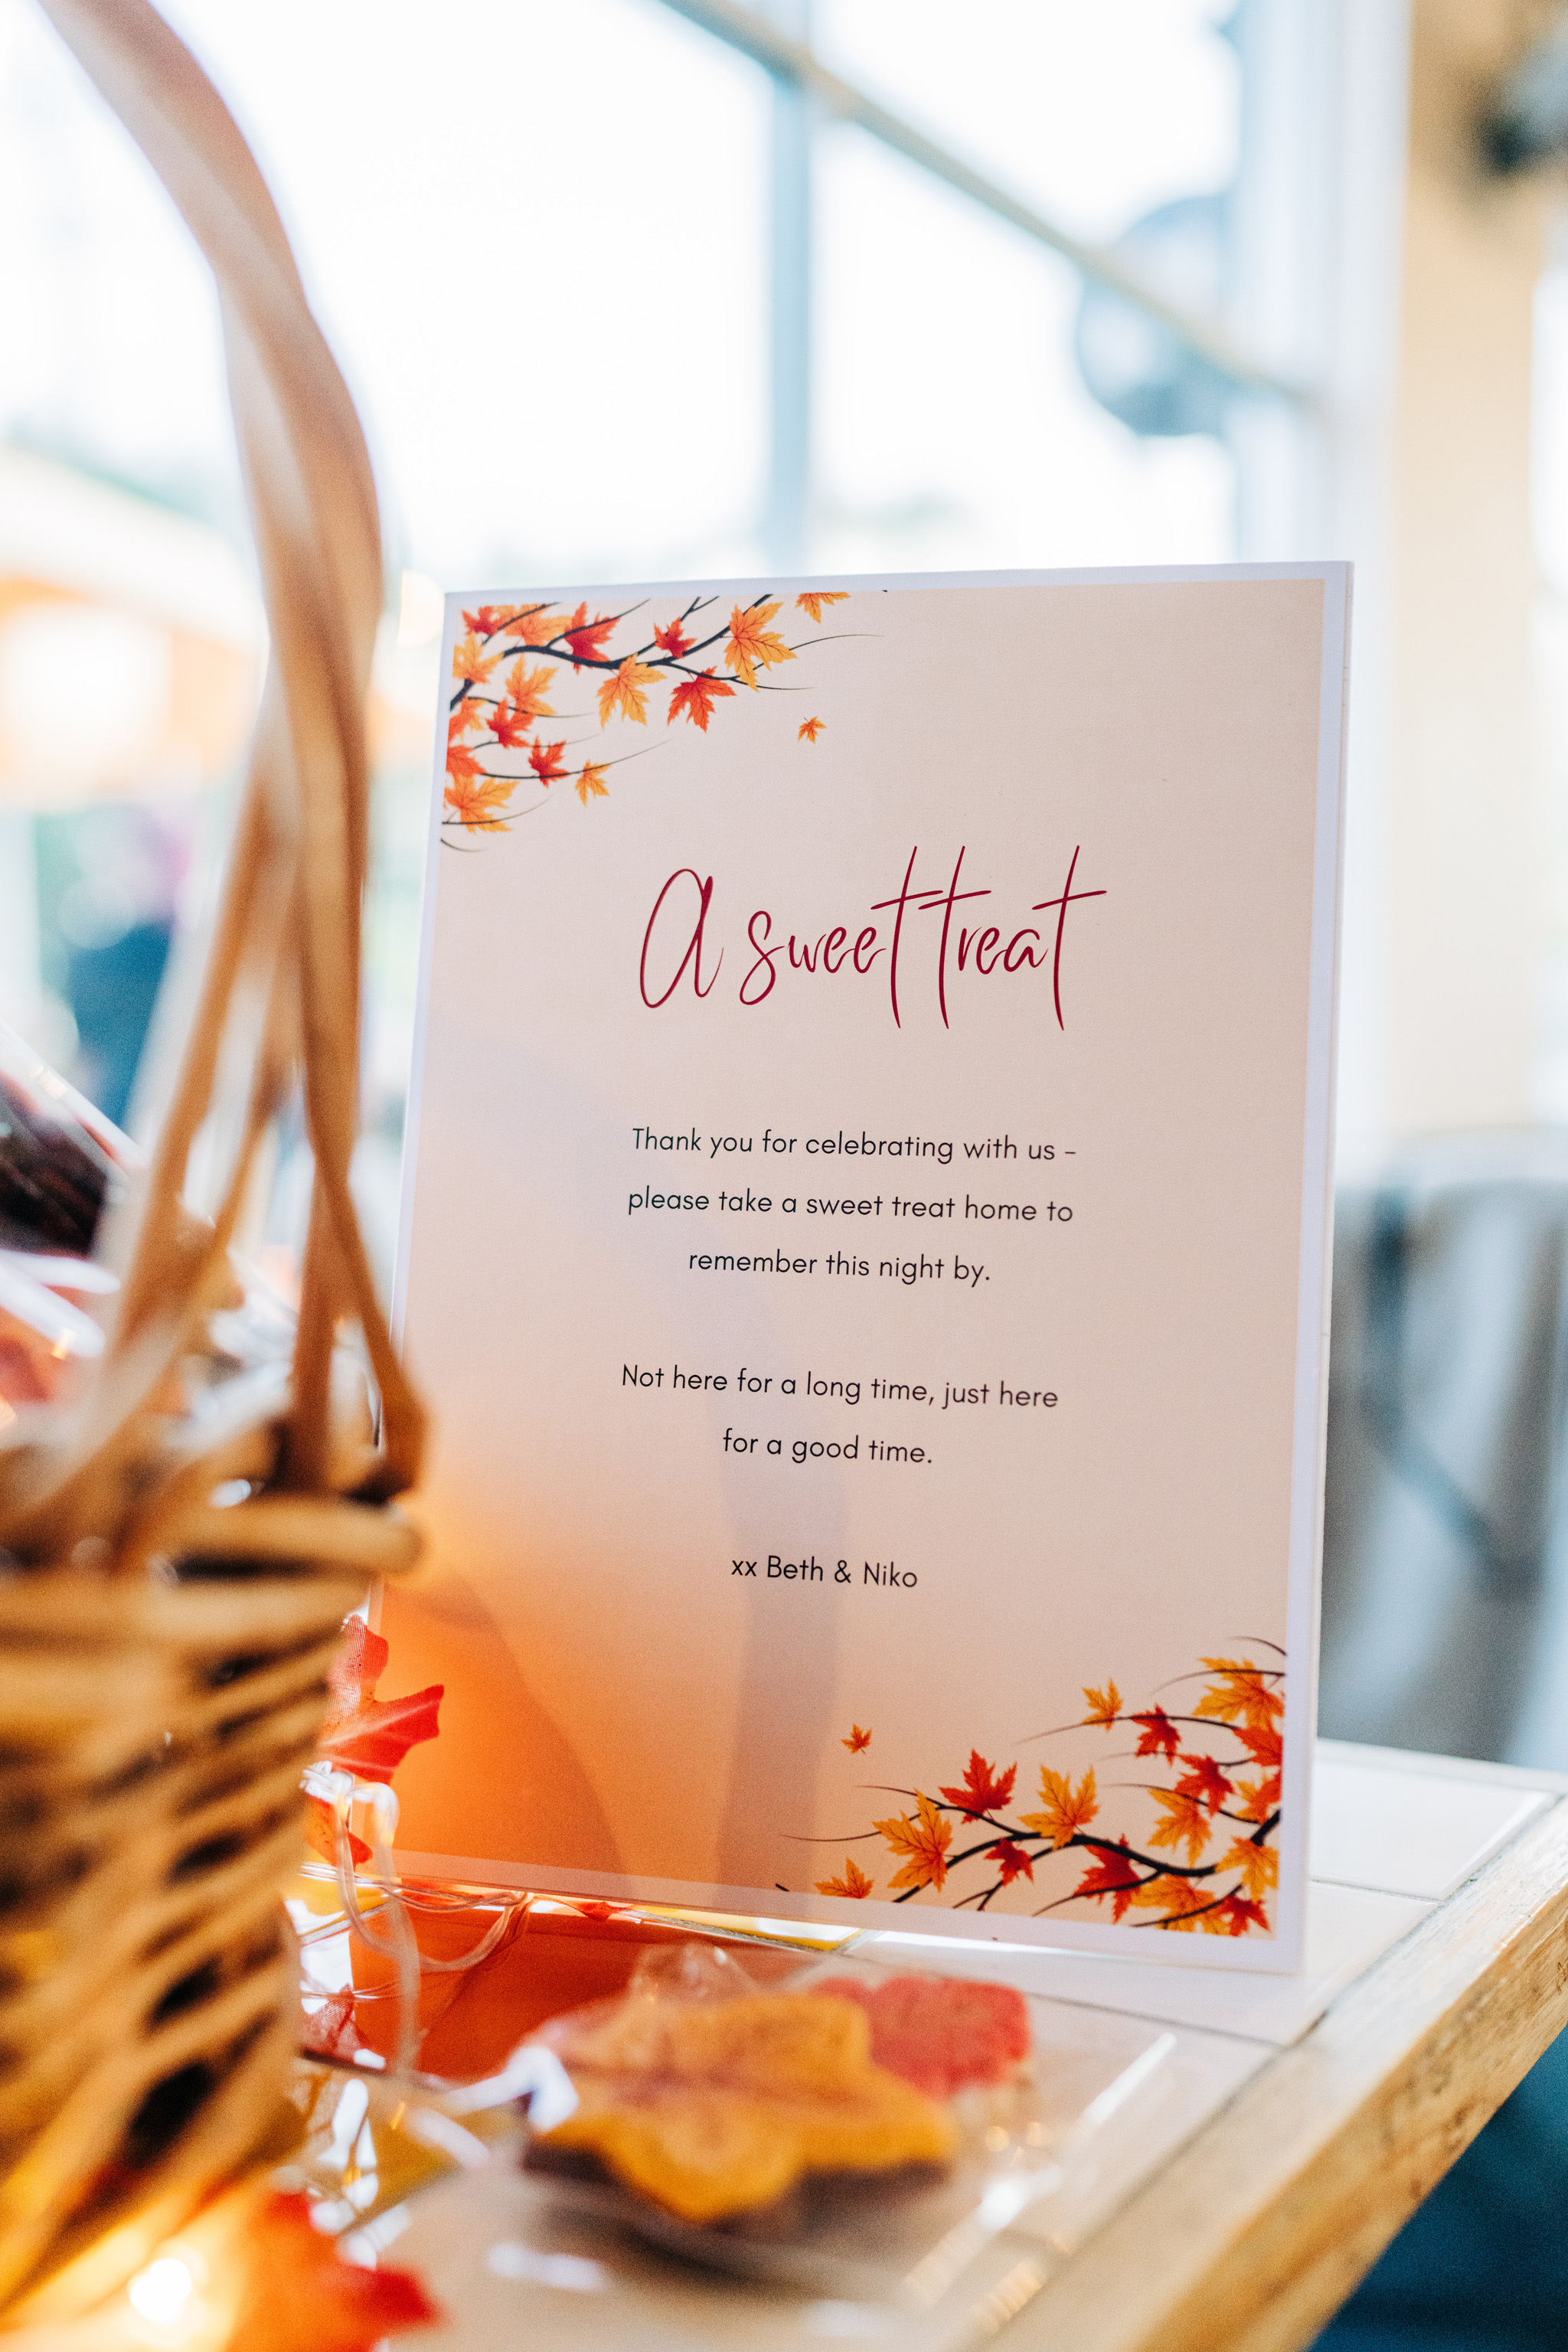 A sweet treat
Thank you for celebrating with us -
please take a sweet treat home to
remember this night by.
Not here for a long time, just here
for a good time.
xx Beth & Niko